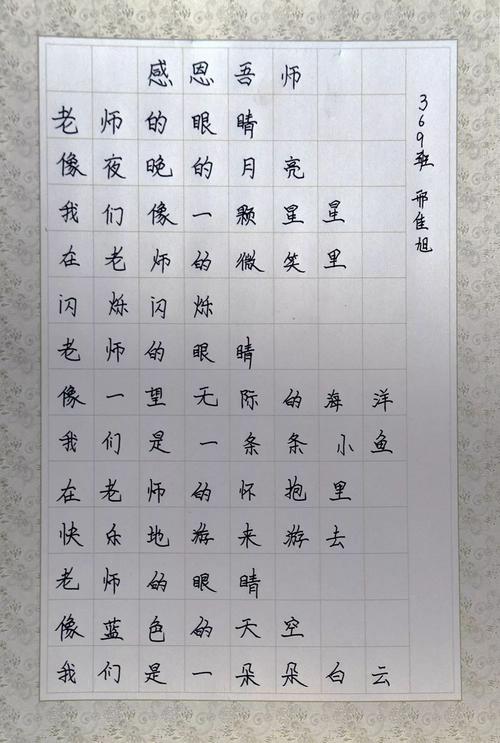 感恩吾师
老师的眼睛
像夜晚的月亮
我们像一颗星星
在老师的微笑里
闪烁闪烁
老师的眼睛
像一望无际的海洋
我们是一条条小鱼
在老师的怀抱里
快乐地游来游去
老师的眼睛
像蓝色的天空
我们是一朵朵白云
369班 邢佳旭